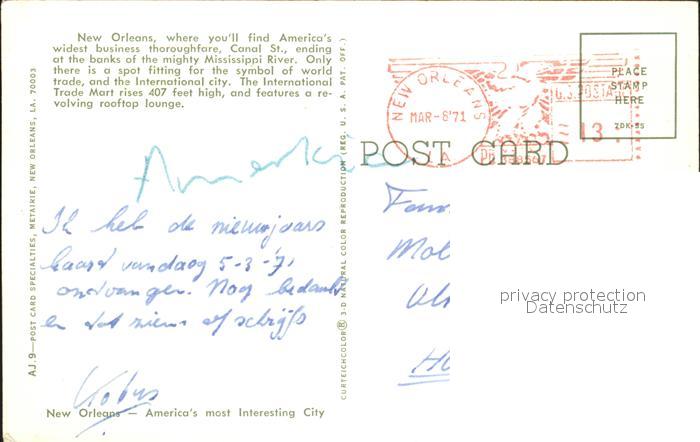 New Orleans, where you'll find America's
widest business thoroughfare, Canal St., ending
at the banks of the mighty Mississippi River. Only
there is a spot fitting for the symbol of world
trade, and the International city. The International
Trade Mart rises 407 feet high, and features a re-
volving rooftop lounge.
AJ.9—POST CARD SPECIALTIES, METAIRIE, NEW ORLEANS, LA. 70003
CURTEICHCOLOR® 3-D NATURAL COLOR REPRODUCTION (REG. U. S. A. PAT. OFF.)
NEW ORLEANS
MAR-8'71
LA
U.S. POSTAGE
13
PLACE
STAMP
HERE
7DK-55
POST CARD
Amerka
Ik heb de nieuwjaars
kaart vandaag 5-3-'71
ontvangen. Nog bedankt
en tot ziens of schrijfs
Kobus
Fam
Mol
Als
privacy protection
Datenschutz
New Orleans — America's most Interesting City